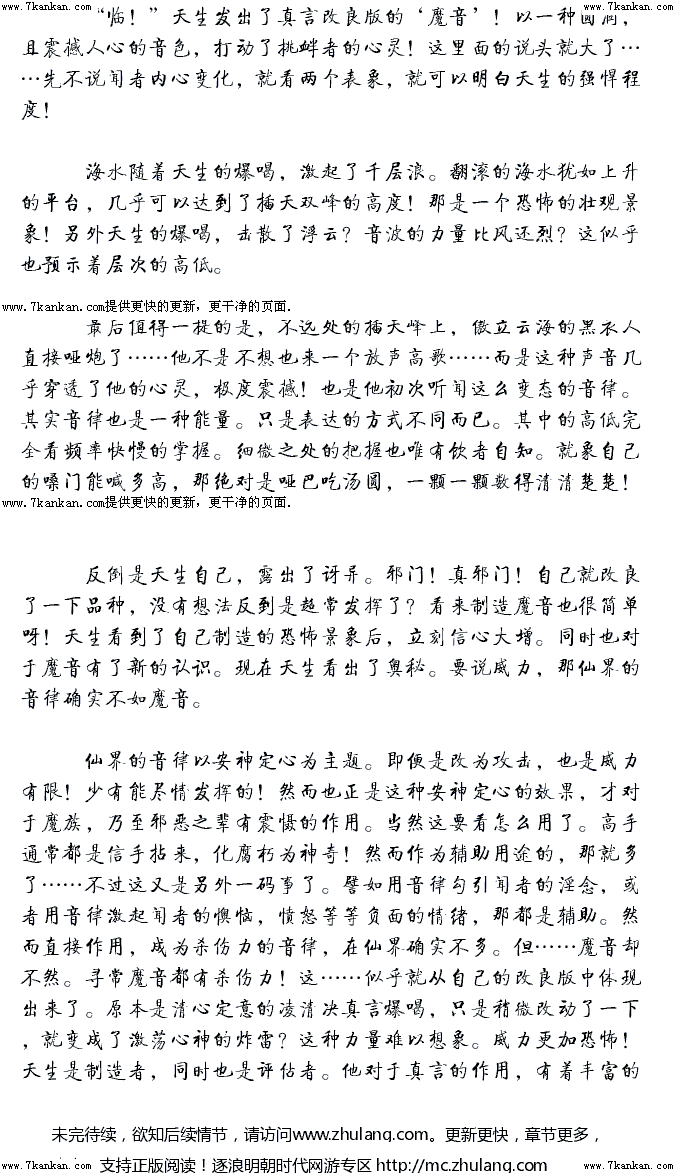 www.7kankan.com www.7kankan.com
“临！”天生发出了真言改良版的‘魔音’！以一种圆润，
且震撼人心的音色，打动了挑衅者的心灵！这里面的说头就大了…
…先不说闻者内心变化，就看两个表象，就可以明白天生的强悍程
度！
海水随着天生的爆喝，激起了千层浪。翻滚的海水犹如上升
的平台，几乎可以达到了插天双峰的高度！那是一个恐怖的壮观景
象！另外天生的爆喝，击散了浮云？音波的力量比风还烈？这似乎
也预示着层次的高低。
www.7kankan.com提供更快的更新，更干净的页面.
最后值得一提的是，不远处的插天峰上，傲立云海的黑衣人
直接哑炮了……他不是不想也来一个放声高歌……而是这种声音几
乎穿透了他的心灵，极度震撼！也是他初次听闻这么变态的音律。
其实音律也是一种能量。只是表达的方式不同而已。其中的高低完
全看频率快慢的掌握。细微之处的把握也唯有饮者自知。就象自己
的嗓门能喊多高，那绝对是哑巴吃汤圆，一颗一颗数得清清楚楚！
www.7kankan.com提供更快的更新，更干净的页面.
反倒是天生自己，露出了讶异。邪门！真邪门！自己就改良
了一下品种，没有想法反到是超常发挥了？看来制造魔音也很简单
呀！天生看到了自己制造的恐怖景象后，立刻信心大增。同时也对
于魔音有了新的认识。现在天生看出了奥秘。要说威力，那仙界的
音律确实不如魔音。
仙界的音律以安神定心为主题。即便是改为攻击，也是威力
有限！少有能尽情发挥的！然而也正是这种安神定心的效果，才对
于魔族，乃至邪恶之辈有震慑的作用。当然这要看怎么用了。高手
通常都是信手拈来，化腐朽为神奇！然而作为辅助用途的，那就多
了……不过这又是另外一码事了。譬如用音律勾引闻者的淫念，或
者用音律激起闻者的懊恼，愤怒等等负面的情绪，那都是辅助。然
而直接作用，成为杀伤力的音律，在仙界确实不多。但……魔音却
不然。寻常魔音都有杀伤力！这……似乎就从自己的改良版中体现
出来了。原本是清心定意的凌清决真言爆喝，只是稍微改动了一下
，就变成了激荡心神的炸雷？这种力量难以想象。威力更加恐怖！
天生是制造者，同时也是评估者。他对于真言的作用，有着丰富的
未完待续，欲知后续情节，请访问www.zhulang.com。更新更快，章节更多，
www.7kankan.com 支持正版阅读！逐浪明朝时代网游专区 http://mc.zhulang.com/ www.7kankan.com